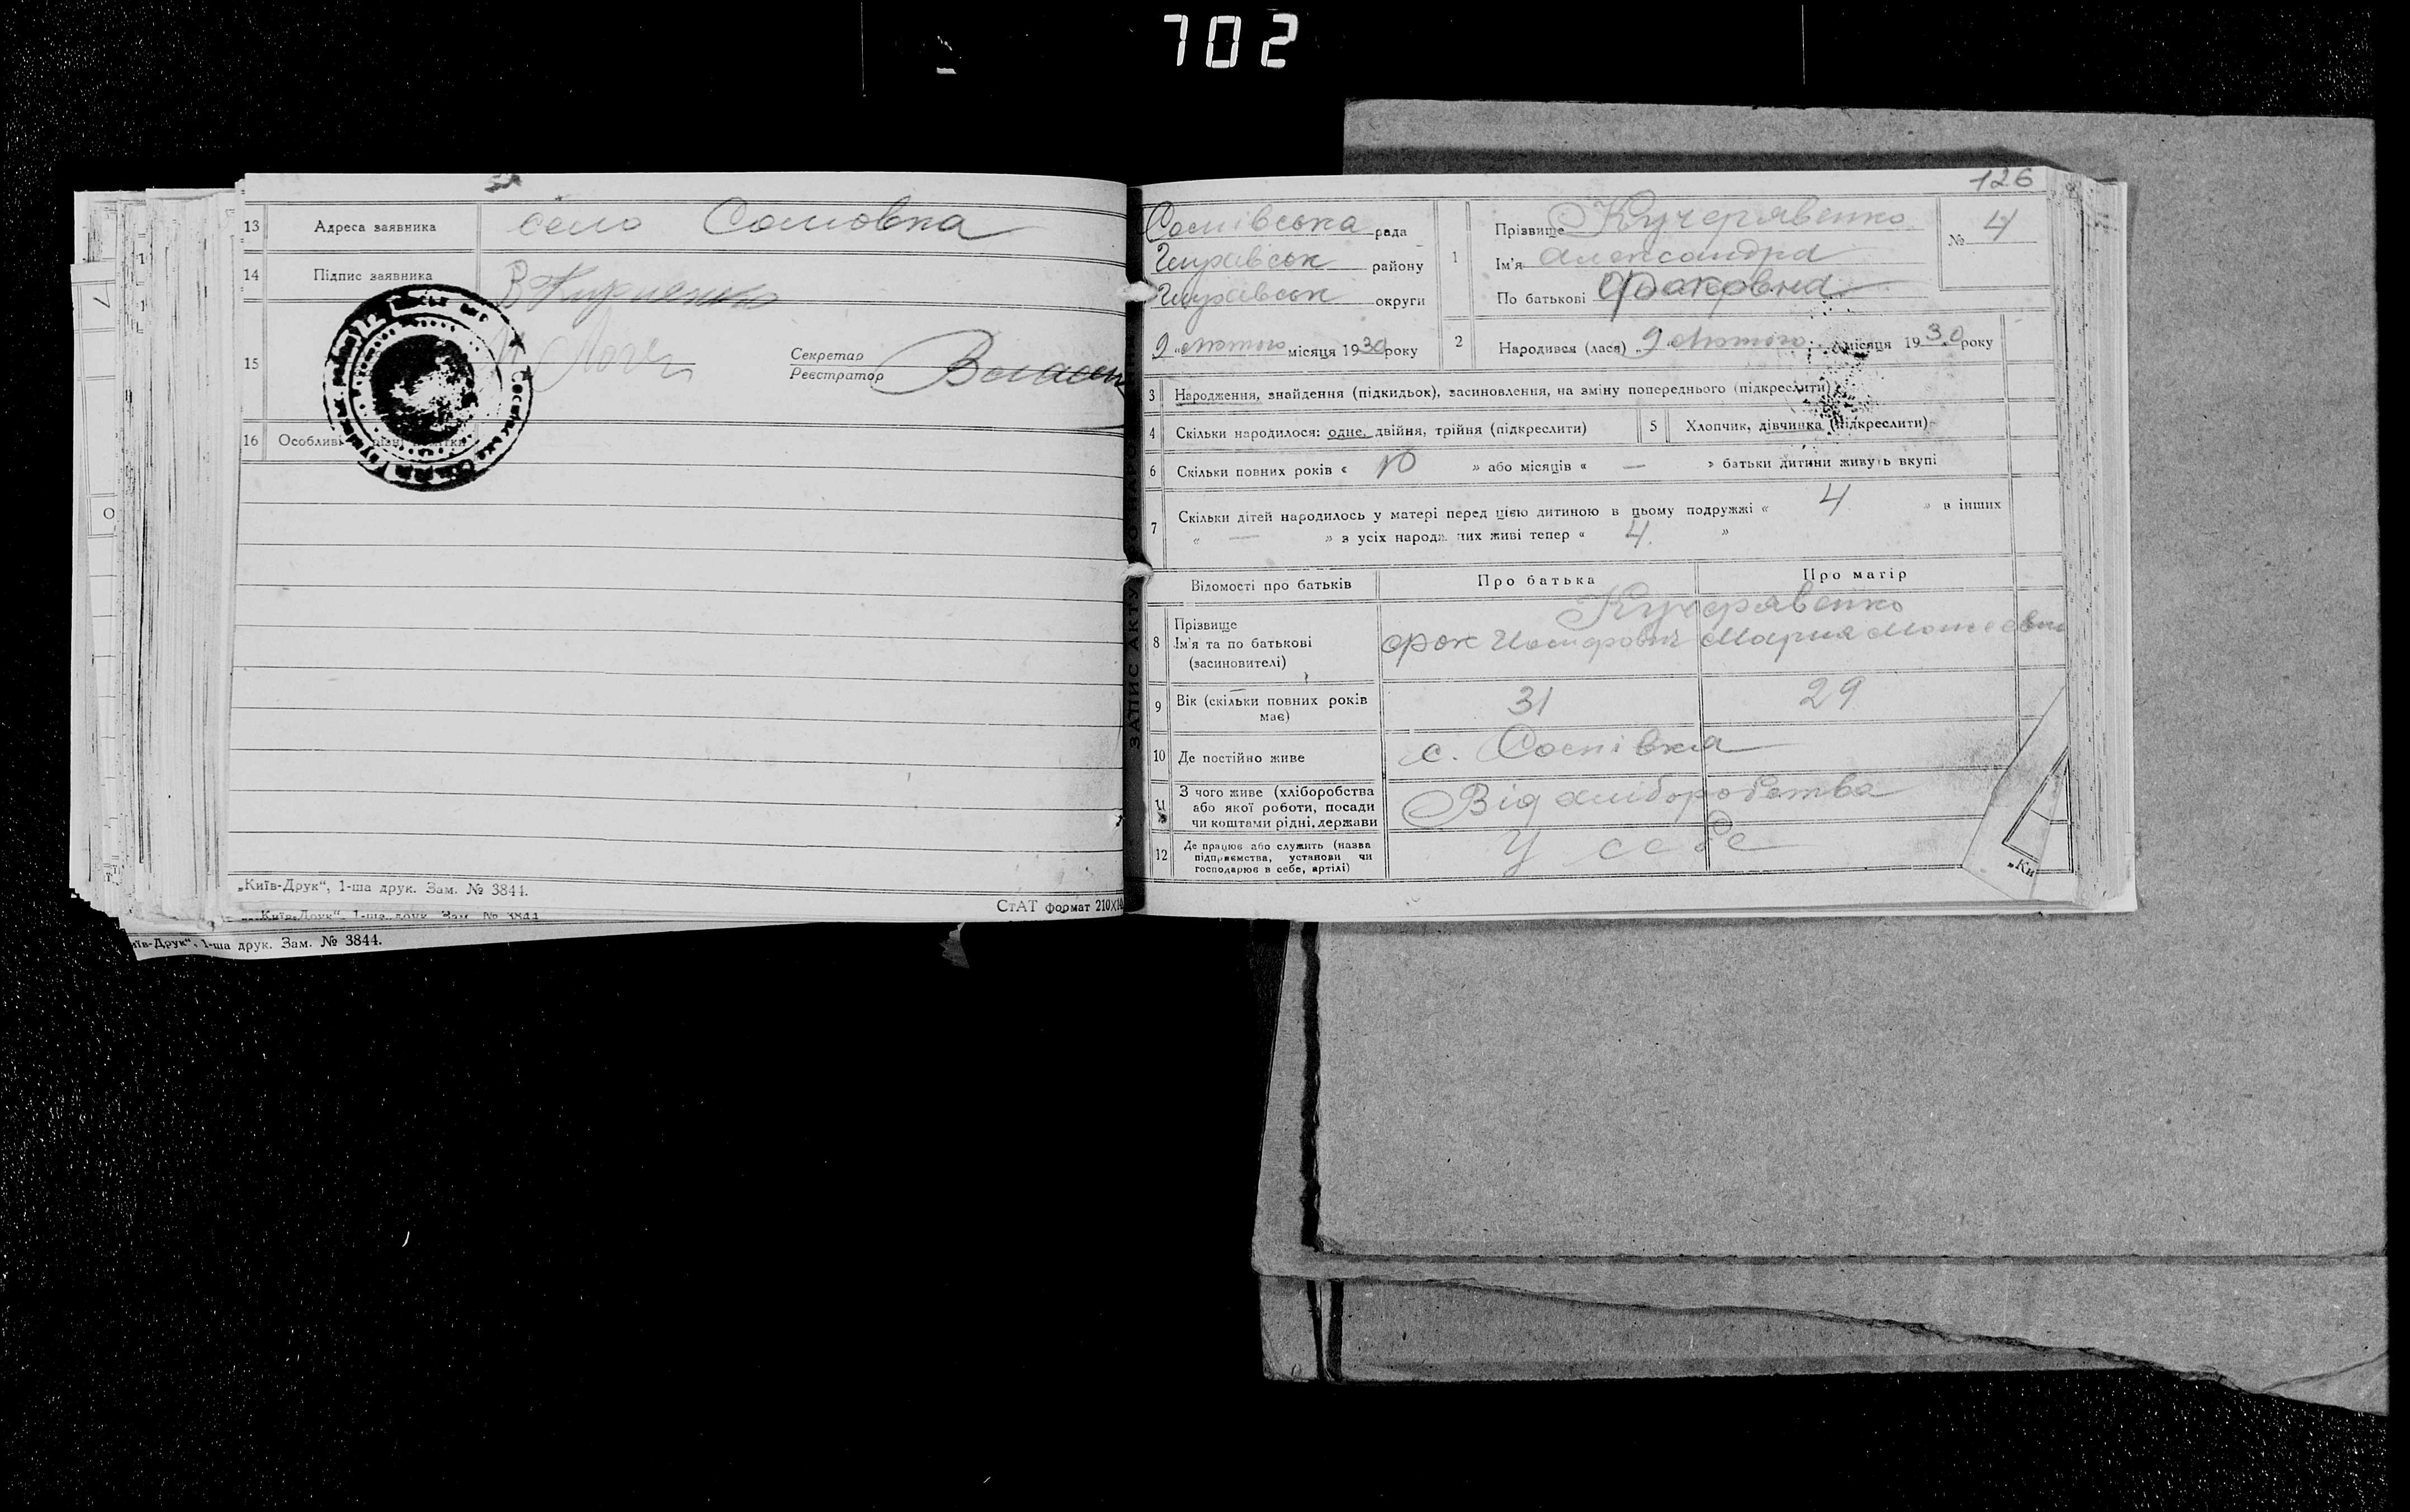 702
13 Адреса заявника село Сомовка
14 Підпис заявника
15 Секретар
Реєстратор
16 Особливі
„Київ-Друк“, 1-ша друк. Зам. № 3844.
СтАТ формат 210х14
„Київ-Друк“ 1-ша друк Зам. № 3844
їв-Друк“, 1-ша друк. Зам. № 3844.
ЗАПИС АКТУ
126
Соснівська рада
району
округи
9 „лютого місяця 1930 року
1 Прізвище Кучерявенко
Ім'я Александра
По батькові Фроковна
№ 4
2 Народився (лася) „9 лютого місяця 1930 року
3 Народження, знайдення (підкидьок), засиновлення, на зміну попереднього (підкреслити)
4 Скільки народилося: одне, двійня, трійня (підкреслити) 5 Хлопчик, дівчинка (підкреслити)
6 Скільки повних років « 10 » або місяців « — » батьки дитини живуть вкупі
7 Скільки дітей народилось у матері перед цією дитиною в цьому подружжі « 4 » в інших
« — » з усіх народж них живі тепер « 4 »
Відомості про батьків Про батька Про матір
8 Прізвище Кучерявенко
Ім'я та по батькові Фрок Мария
(засиновителі)
9 Вік (скільки повних років має) 31 29
10 Де постійно живе с. Соснівка
11 З чого живе (хліборобства
або якої роботи, посади
чи коштами рідні, держави Від хліборобства
12 Де працює або служить (назва
підприємства, установи чи
господарює в себе, артілі) У себе
„Ки